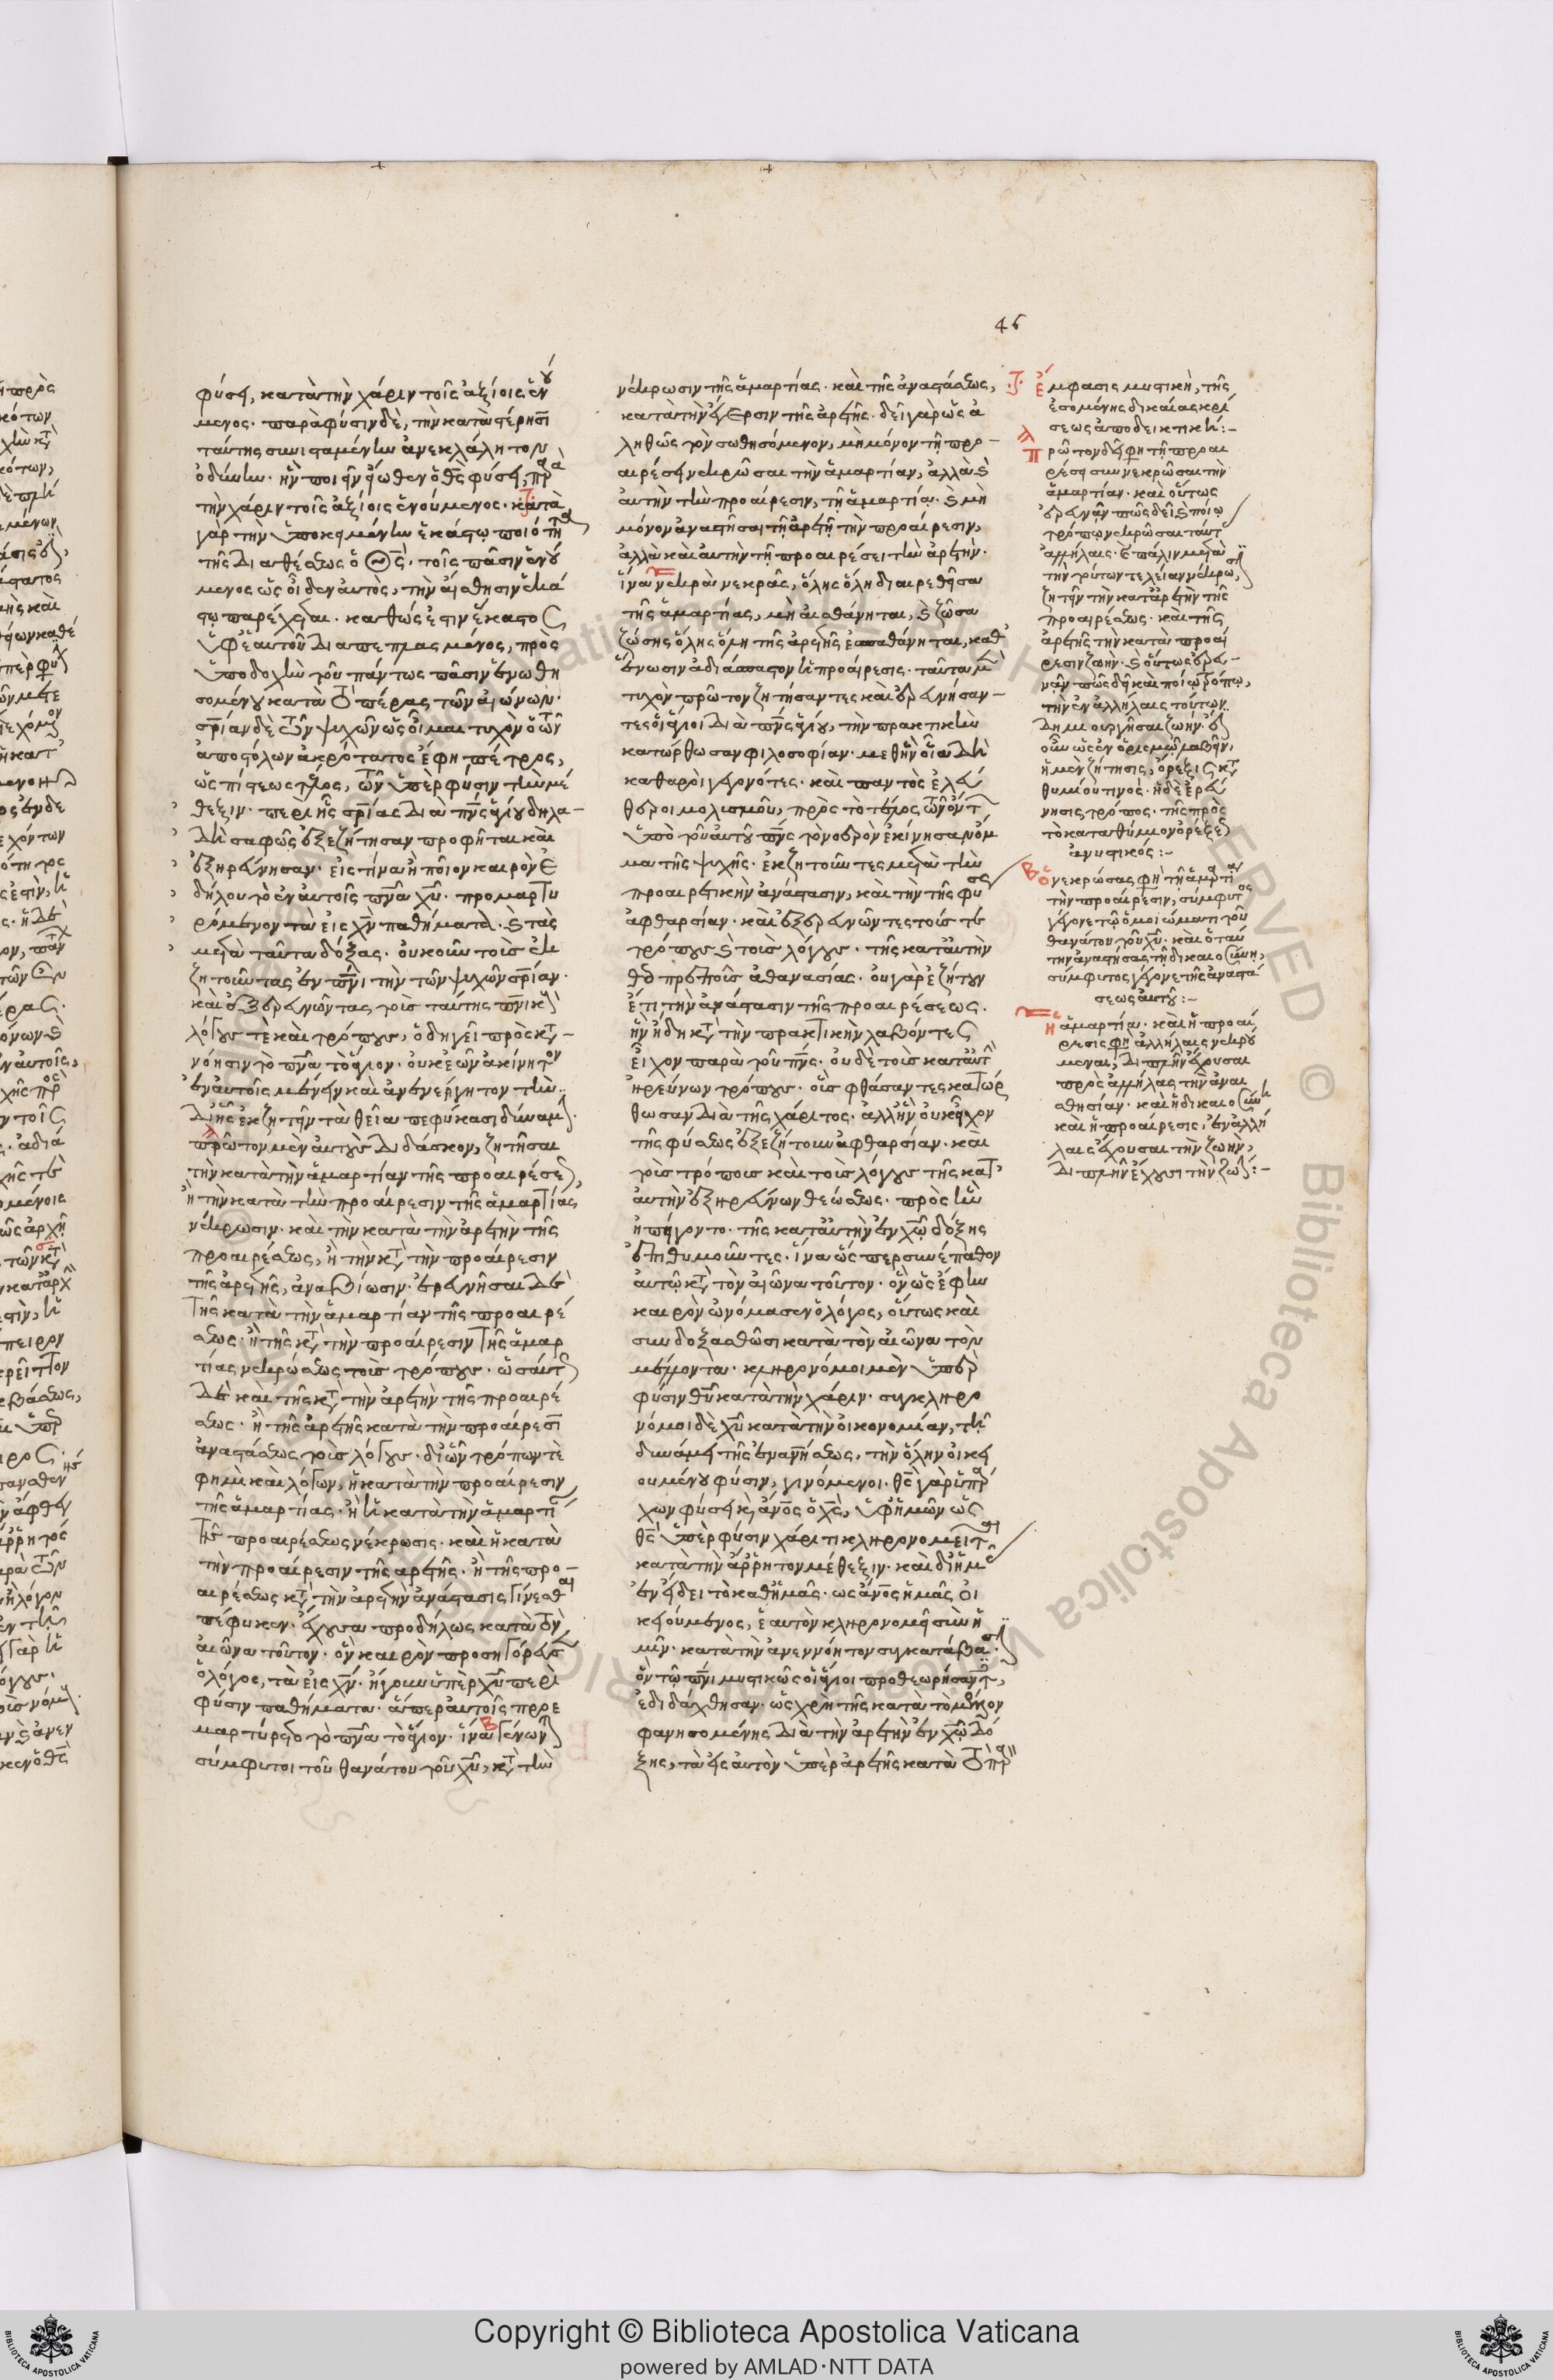 46
φύσει, κατὰ τὴν χάριν τοῖς ἀξίοις ἑνού
μενος· παρὰ φύσιν δὲ, τὴν κατὰ στέρησιν
ταύτης συνισταμένην ἀνεκλάλητον
ὀδύνην· ἣν ποιεῖν εἴωθεν ὁ θς φύσει, παρὰ
τὴν χάριν τοῖς ἀξίοις ἑνούμενος· κατὰ
γὰρ τὴν ὑποκειμένην ἑκάστῳ ποιότητα
τῆς διαθέσεως ὁ θς, τοῖς πᾶσιν ἑνού
μενος ὡς οἶδεν αὐτὸς, τὴν αἴσθησιν ἑκά
στῳ παρέχεται· καθώς ἐστιν ἕκαστος
ὑφ' ἑαυτοῦ διαπεπλασμένος, πρὸς
ὑποδοχὴν τοῦ πάντως πᾶσιν ἑνωθη
σομένου κατὰ τὸ πέρας τῶν αἰώνων·
σριαν δὲ τῶν ψυχῶν ὡς οἶμαι τυχὸν ὁ τῶν
ἀποστόλων ἀκρότατος ἔφη πέτρος,
ὡς πίστεως τέλος, τῶν ὑπὲρ φύσιν τὴν μέ
θεξιν· περὶ ἧς σριας διὰ πνς ἁγίου δηλα-
δὴ σαφῶς ἐξεζήτησαν προφῆται καὶ
ἐξηρεύνησαν· εἰς τίνα ἢ ποῖον καιρὸν ἐ
δήλου τὸ ἐν αὐτοῖς πνα χυ· προμαρτυ
ρόμενον τὰ εἰς χν παθήματα· καὶ τὰς
μετὰ ταῦτα δόξας· οὐκοῦν τοὺς ἐκ
ζητοῦντας ἐν πνι τὴν τῶν ψυχῶν σριαν·
καὶ ἐξερευνῶντας τοὺς ταύτης πνικοὺς
λόγους τὲ καὶ τρόπους, ὁδηγεῖ πρὸς κατα-
νόησιν τὸ πνα τὸ ἅγιον· οὐκ ἐῶν ἀκίνητον
ἐν αὐτοῖς μένειν καὶ ἀνενέργητον τὴν
δι' ἧς ἐκζητεῖν τὰ θεῖα πεφύκασι δύναμιν·
πρῶτον μὲν αὐτοὺς διδάσκον, ζητῆσαι
τὴν κατὰ τὴν ἁμαρτίαν τῆς προαιρέσεως,
ἢ τὴν κατὰ τὴν προαίρεσιν τῆς ἁμαρτίας
νέκρωσιν· καὶ τὴν κατὰ τὴν ἀρετὴν τῆς
προαιρέσεως, ἢ τὴν κατὰ τὴν προαίρεσιν
τῆς ἀρετῆς, ἀναβίωσιν· ἐρευνῆσαι δὲ
τῆς κατὰ τὴν ἁμαρτίαν τῆς προαιρέ
σεως· ἢ τῆς κατὰ τὴν προαίρεσιν τῆς ἁμαρ
τίας νεκρώσεως τοὺς τρόπους· ὡσαύτως
δὲ καὶ τῆς κατὰ τὴν ἀρετὴν τῆς προαιρέ
σεως· ἢ τῆς ἀρετῆς κατὰ τὴν προαίρεσιν
ἀναστάσεως τοὺς λόγους· δι' ὧν τρόπων τὲ
φημὶ καὶ λόγων, ἡ κατὰ τὴν προαίρεσιν
τῆς ἁμαρτίας· ἢ ἡ κατὰ τὴν ἁμαρτίαν
τῆς προαιρέσεως νέκρωσις· καὶ ἡ κατὰ
τὴν προαίρεσιν τῆς ἀρετῆς· ἢ τῆς προ-
αιρέσεως κατὰ τὴν ἀρετὴν ἀνάστασις γίνεσθαι
πέφυκεν· ἔχουσα προδήλως κατὰ τὸν
αἰῶνα τοῦτον· ὃν καιρὸν προσηγόρευσεν
ὁ λόγος, τὰ εἰς χν· ἤγουν ὑπὲρ χυ περὶ
φύσιν παθήματα· ἅπερ αὐτοῖς προε
μαρτύρετο τὸ πνα τὸ ἅγιον· ἵνα γένωνται
σύμφυτοι τοῦ θανάτου τοῦ χυ, κατὰ τὴν
νέκρωσιν τῆς ἁμαρτίας· καὶ τῆς ἀναστάσεως,
κατὰ τὴν ἐνέργειαν τῆς ἀρετῆς· δεῖ γὰρ ὡς ἀ
ληθῶς τὸν σωθησόμενον, μὴ μόνον τῇ προ-
αιρέσει νεκρῶσαι τὴν ἁμαρτίαν, ἀλλὰ καὶ
αὐτὴν τὴν προαίρεσιν, τῇ ἁμαρτίᾳ· καὶ μὴ
μόνον ἀναστῆσαι τῇ ἀρετῇ τὴν προαίρεσιν,
ἀλλὰ καὶ αὐτὴν τῇ προαιρέσει τὴν ἀρετήν·
ἵνα νεκρὰ νεκρᾶς, ὅλης ὅλη διαιρεθεῖσα
τῆς ἁμαρτίας, μὴ αἰσθάνηται, καὶ ζῶσα
ζώσης ὅλης ὅλη τῆς ἀρετῆς ἐπαισθάνηται, καθ'
ἕνωσιν ἀδιάσπαστον ἡ προαίρεσις· ταῦτα μὲν
τυχὸν πρῶτον ζητήσαντες καὶ ἐρευνήσαν-
τες οἱ ἅγιοι διὰ πνς ἁγίου, τὴν πρακτικὴν
κατώρθωσαν φιλοσοφίαν· μεθ' ἣν οἷα δὴ
καθαροὶ γεγονότες· καὶ παντὸς ἐλεύ
θεροι μολυσμοῦ, πρὸς τὸ τέλος τῶν ὄντων
ὑπὸ τοῦ αὐτοῦ πνς τὸ νοερὸν ἐκίνησαν ὄμ
μα τῆς ψυχῆς· ἐκζητοῦντες μετὰ τὴν
προαιρετικὴν ἀνάστασιν, καὶ τὴν τῆς φύσεως
ἀφθαρσίαν· καὶ ἐξερευνῶντες τούς τε
τρόπους καὶ τοὺς λόγους· τῆς κατ' αὐτὴν
θεοπρεποῦς ἀθανασίας· οὐ γὰρ ἐζήτουν
ἔτι τὴν ἀνάστασιν τῆς προαιρέσεως·
ἣν ἤδη κατὰ τὴν πρακτικὴν λαβόντες
εἶχον παρὰ τοῦ πνς· οὐδὲ τοὺς κατ' αὐτὴν
ἠρεύνων τρόπους· οὓς φθάσαντες κατώρ
θωσαν διὰ τῆς χάριτος· ἀλλ' ἣν οὐκ εἶχον
τῆς φύσεως ἐξεζήτουν ἀφθαρσίαν· καὶ
τοὺς τρόπους καὶ τοὺς λόγους τῆς κατ'
αὐτὴν ἐξηρεύνων θεώσεως· πρὸς ἣν
ἠπείγοντο· τῆς κατ' αὐτὴν ἐν χῷ δόξης
ἐπιθυμοῦντες· ἵνα ὥσπερ συνέπαθον
αὐτῷ κατὰ τὸν αἰῶνα τοῦτον· ὃν ὡς ἔφην
καιρὸν ὠνόμασεν ὁ λόγος, οὕτως καὶ
συνδοξασθῶσι κατὰ τὸν αἰῶνα τὸν
μέλλοντα· κληρονόμοι μὲν ὑπὲρ
φύσιν θυ κατὰ τὴν χάριν· συγκληρο
νόμοι δὲ χυ κατὰ τὴν οἰκονομίαν, τῇ
δυνάμει τῆς ἐνανήσεως, τὴν ὅλην οἰκει
ουμένου φύσιν, γινόμενοι· θς γὰρ ὑπάρ
χων φύσει καὶ ἄνος ὁ χς, ὑφ' ἡμῶν ὡς
θς ὑπὲρ φύσιν χάριτι κληρονομεῖται
κατὰ τὴν ἄρρητον μέθεξιν· καὶ δι' ἡμᾶς
ἐν εἴδει τὸ καθ' ἡμᾶς· ὡς ἄνος ἡμᾶς οἰ
κειούμενος, ἑαυτὸν κληρονομεῖ σὺν ἡ
μῖν· κατὰ τὴν ἀνεννόητον συγκατάβασιν·
ὃν τῷ πνι μυστικῶς οἱ ἅγιοι προθεωρήσαντες,
ἐδιδάχθησαν· ὡς χρὴ τῆς κατὰ τὸ μέλλον
φανησομένης διὰ τὴν ἀρετὴν ἐν χῷ δό
ξης, τὰ εἰς αὐτὸν ὑπὲρ ἀρετῆς κατὰ τὸ παρὸν
ἔμφασις μυστικὴ, τῆς
ἐσομένης δικαίας κρί
σεως ἀποδεικτική:-
πρῶτον δεῖ φη τῇ προαι
ρέσει συννεκρῶσαι τὴν
ἁμαρτίαν· καὶ οὕτως
ἐρευνᾶν πῶς δεῖ καὶ ποίῳ
τρόπῳ νεκρῶσαι ταύτας
ἀλλήλαις· καὶ πάλιν μετὰ
τὴν τούτων τελείαν νέκρωσιν,
ζητεῖν τὴν κατ' ἀρετὴν τῆς
προαιρέσεως· καὶ τῆς
ἀρετῆς τὴν κατὰ προαί
ρεσιν ζωήν· καὶ οὕτως ἐρευ-
νᾶν πῶς δεῖ καὶ ποίῳ τρόπῳ,
τὴν ἐν ἀλλήλαις τούτων
δημιουργῆσαι ζωήν·
οὖν ὡς ἐν ὅρισμῷ λαβεῖν,
ἡ μὲν ζήτησις, ὄρεξις κατα
θυμίου τινός· ἡ δὲ ἐρεύ
νησις τρόπος· τῆς πρὸς
τὸ καταθύμιον ὀρέξεως
ἀνυστικός:-
ὁ νεκρώσας φη τῇ ἁμαρτίᾳ
τὴν προαίρεσιν, σύμφυτος
γέγονε τῷ ὁμοιώματι τοῦ
θανάτου τοῦ χυ· καὶ ὁ ταύ
την ἀναστήσας τῇ δικαιοσύνῃ,
σύμφυτος γέγονε τῆς ἀναστά
σεως αὐτοῦ:-
ἡ ἁμαρτία· καὶ ἡ προαί
ρεσις φη ἀλλήλαις νεκρού
μεναι, διπλῆν ἔχουσαι
πρὸς ἀλλήλας τὴν ἀναι
σθησίαν· καὶ ἡ δικαιοσύνη
καὶ ἡ προαίρεσις, ἐν ἀλλή
λαις ἔχουσαι τὴν ζωὴν,
διπλῆν ἔχουσι τὴν ζωήν:-
Copyright © Biblioteca Apostolica Vaticana
powered by AMLAD·NTT DATA